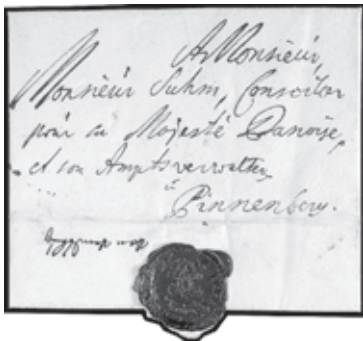 A Monsieur,
Monsieur Suhm, Conseiler
pour sa Majesté Danoise,
et son Amptsverwalter
à
Pinnenberg.